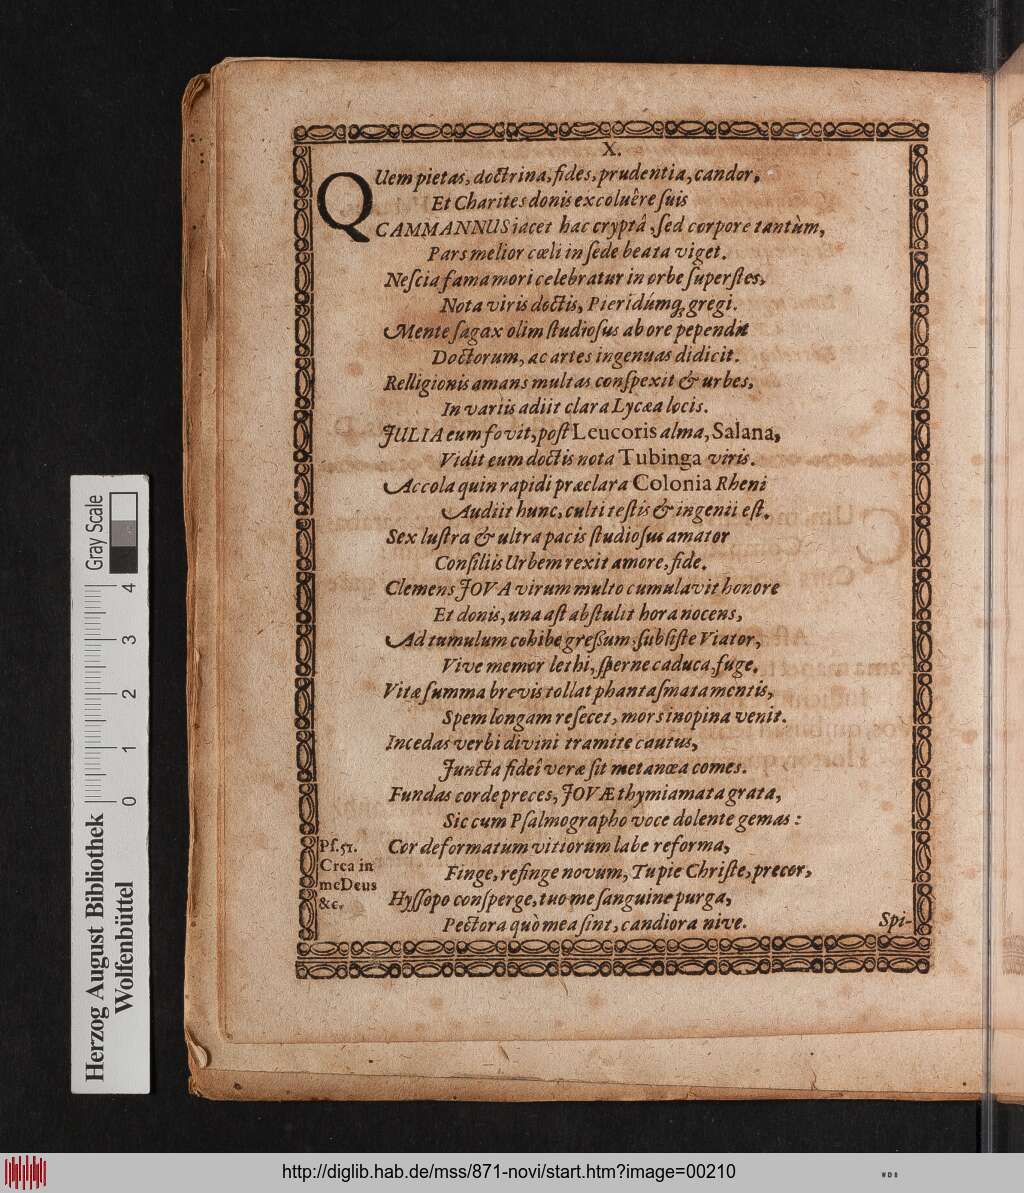 X.
QUem pietas, doctrina, fides, prudentia, candor,
Et Charites donis excoluêre suis
CAMMANNUS iacet hac cryptâ, sed corpore tantùm,
Pars melior cœli in sede beata viget.
Nescia fama mori celebratur in orbe superstes,
Nota viris doctis, Pieridúmq; gregi.
Mente sagax olim studiosus ab ore pependit
Doctorum, ac artes ingenuas didicit.
Relligionis amans multas conspexit & urbes,
In variis adiit clara Lycæa locis.
JULIA eum fovit, post Leucoris alma, Salana,
Vidit eum doctis nota Tubinga viris.
Accola quin rapidi præclara Colonia Rheni
Audiit hunc, culti testis & ingenii est.
Sex lustra & ultra pacis studiosus amator
Consiliis Urbem rexit amore, fide.
Clemens JOVA virum multo cumulavit honore
Et donis, una ast abstulit hora nocens,
Ad tumulum cohibe gressum, subsiste Viator,
Vive memor lethi, sperne caduca, fuge.
Vitæ summa brevis tollat phantasmata mentis,
Spem longam resecet, mors inopina venit.
Incedas verbi divini tramite cautus,
Juncta fideî veræ sit metanœa comes.
Fundas corde preces, JOVÆ thymiamata grata,
Sic cum Psalmographo voce dolente gemas:
Ps. 51.
Crea in
me Deus
&c.
Cor deformatum vitiorum labe reforma,
Finge, refinge novum, Tu pie Christe, precor,
Hyssopo consperge, tuo me sanguine purga,
Pectora quò mea sint, candiora nive.
Spi-
Gray Scale
0 1 2 3 4
Herzog August Bibliothek
Wolfenbüttel
http://diglib.hab.de/mss/871-novi/start.htm?image=00210